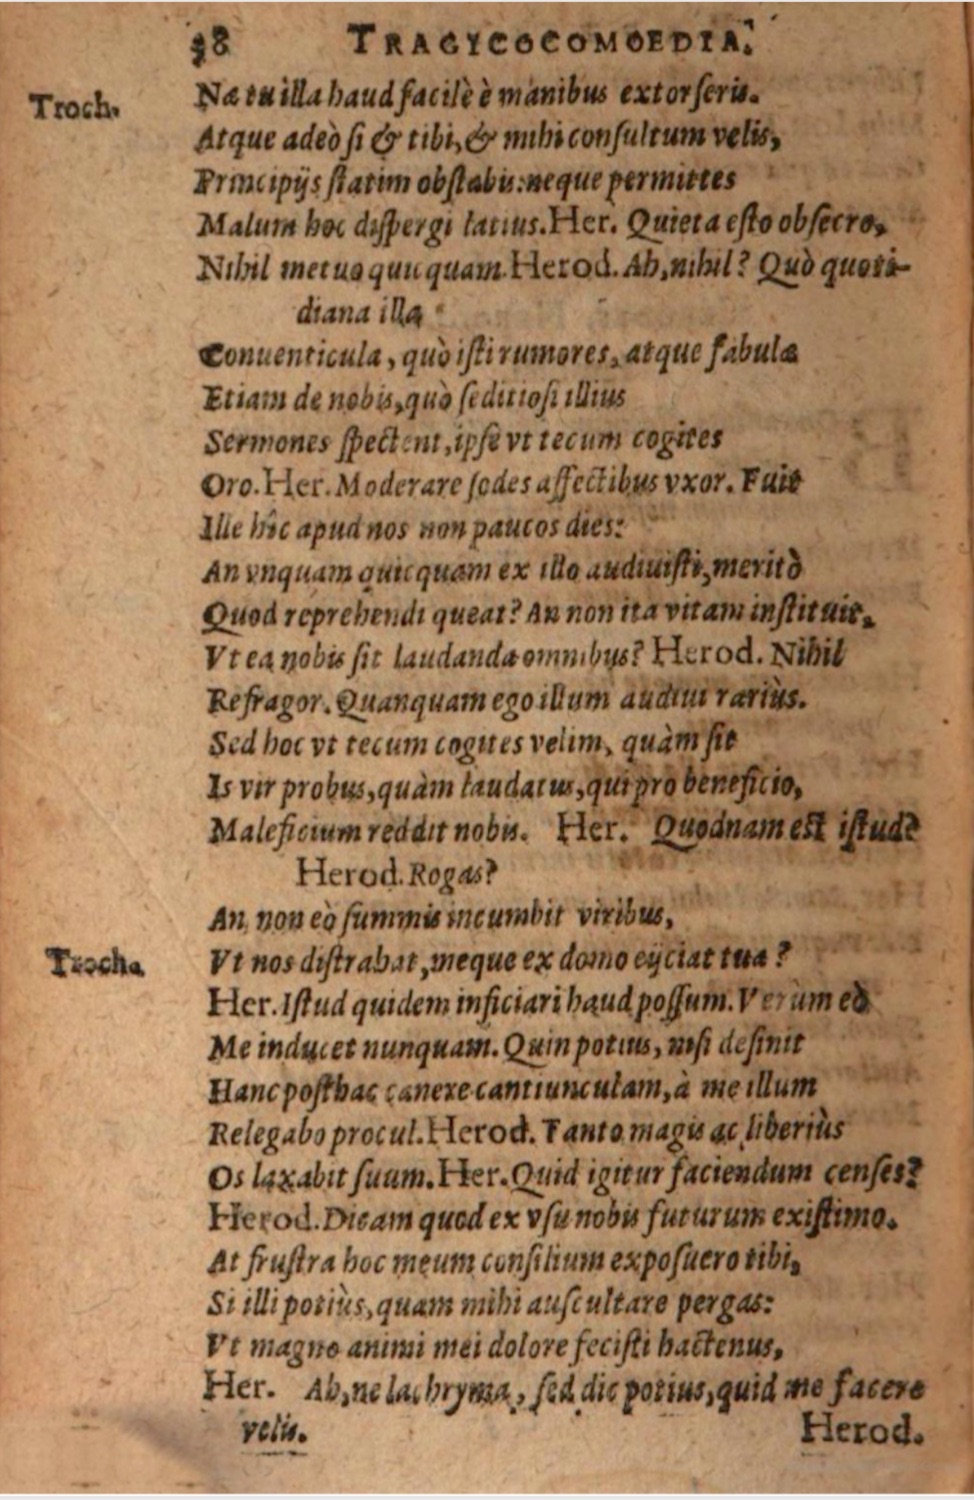 38 TRAGICOCOMOEDIA.
Troch. Næ tu illa haud facilè è manibus extorseris.
Atque adeò si & tibi, & mihi consultum velis,
Principijs statim obstabis: neque permittes
Malum hoc dispergi latius. Her. Quieta esto obsecro,
Nihil metuo quicquam. Herod. Ah, nihil? Quò quoti-
diana illa
Conuenticula, quò isti rumores, atque fabulæ
Etiam de nobis, quò seditiosi illius
Sermones spectent, ipse vt tecum cogites
Oro. Her. Moderare sodes affectibus vxor. Fuit
Ille hîc apud nos non paucos dies:
An vnquam quicquam ex illo audiuisti, meritò
Quod reprehendi queat? An non ita vitam instituit,
Vt ea nobis sit laudanda omnibus? Herod. Nihil
Refragor. Quanquam ego illum audiui rariùs.
Sed hoc vt tecum cogites velim, quàm sit
Is vir probus, quàm laudatus, qui pro beneficio,
Maleficium reddit nobis. Her. Quodnam est istud?
Herod. Rogas?
An non eò summis incumbit viribus,
Troch. Vt nos distrahat, meque ex domo eijciat tua?
Her. Istud quidem inficiari haud possum. Verùm eò
Me inducet nunquam. Quin potius, nisi desinit
Hanc posthac canere cantiunculam, à me illum
Relegabo procul. Herod. Tanto magis ac liberiùs
Os laxabit suum. Her. Quid igitur faciendum censes?
Herod. Dicam quod ex vsu nobis futurum existimo.
At frustra hoc meum consilium exposuero tibi,
Si illi potiùs, quam mihi auscultare pergas:
Vt magno animi mei dolore fecisti hactenus,
Her. Ah, ne lachryma, sed dic potius, quid me facere
velis. Herod.